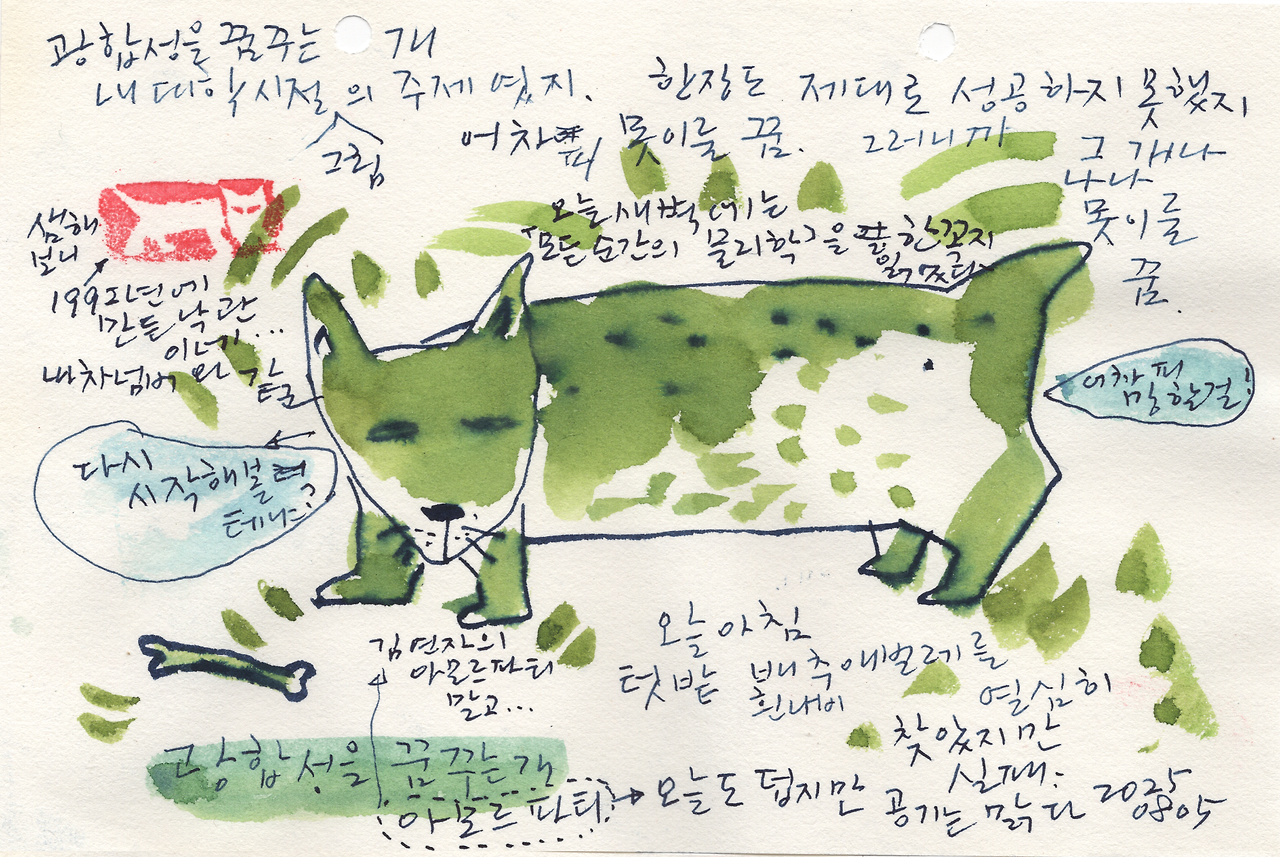 광합성을 꿈꾸는 개
내 대학시절의 주제였지.
그림
한장도 제대로 성공하지 못했지
어차피 못이룰 꿈.
그러니까
그 개나
나나
못이룰
꿈.
오늘 새벽에는
모든 순간의 물리학을 한꼭지
읽었다
셈해
보니
만든 낙관
이네...
내차넘버와 같
다시
시작해볼
테냐?
어차피
망할걸!
김연자의
아모르파티
말고...
오늘 아침
텃밭 배추애벌레를
흰나비
열심히
찾았지만
실패.
광합성을 꿈꾸는 개
아모르 파티
오늘도 덥지만
공기는 맑다
2025
0805